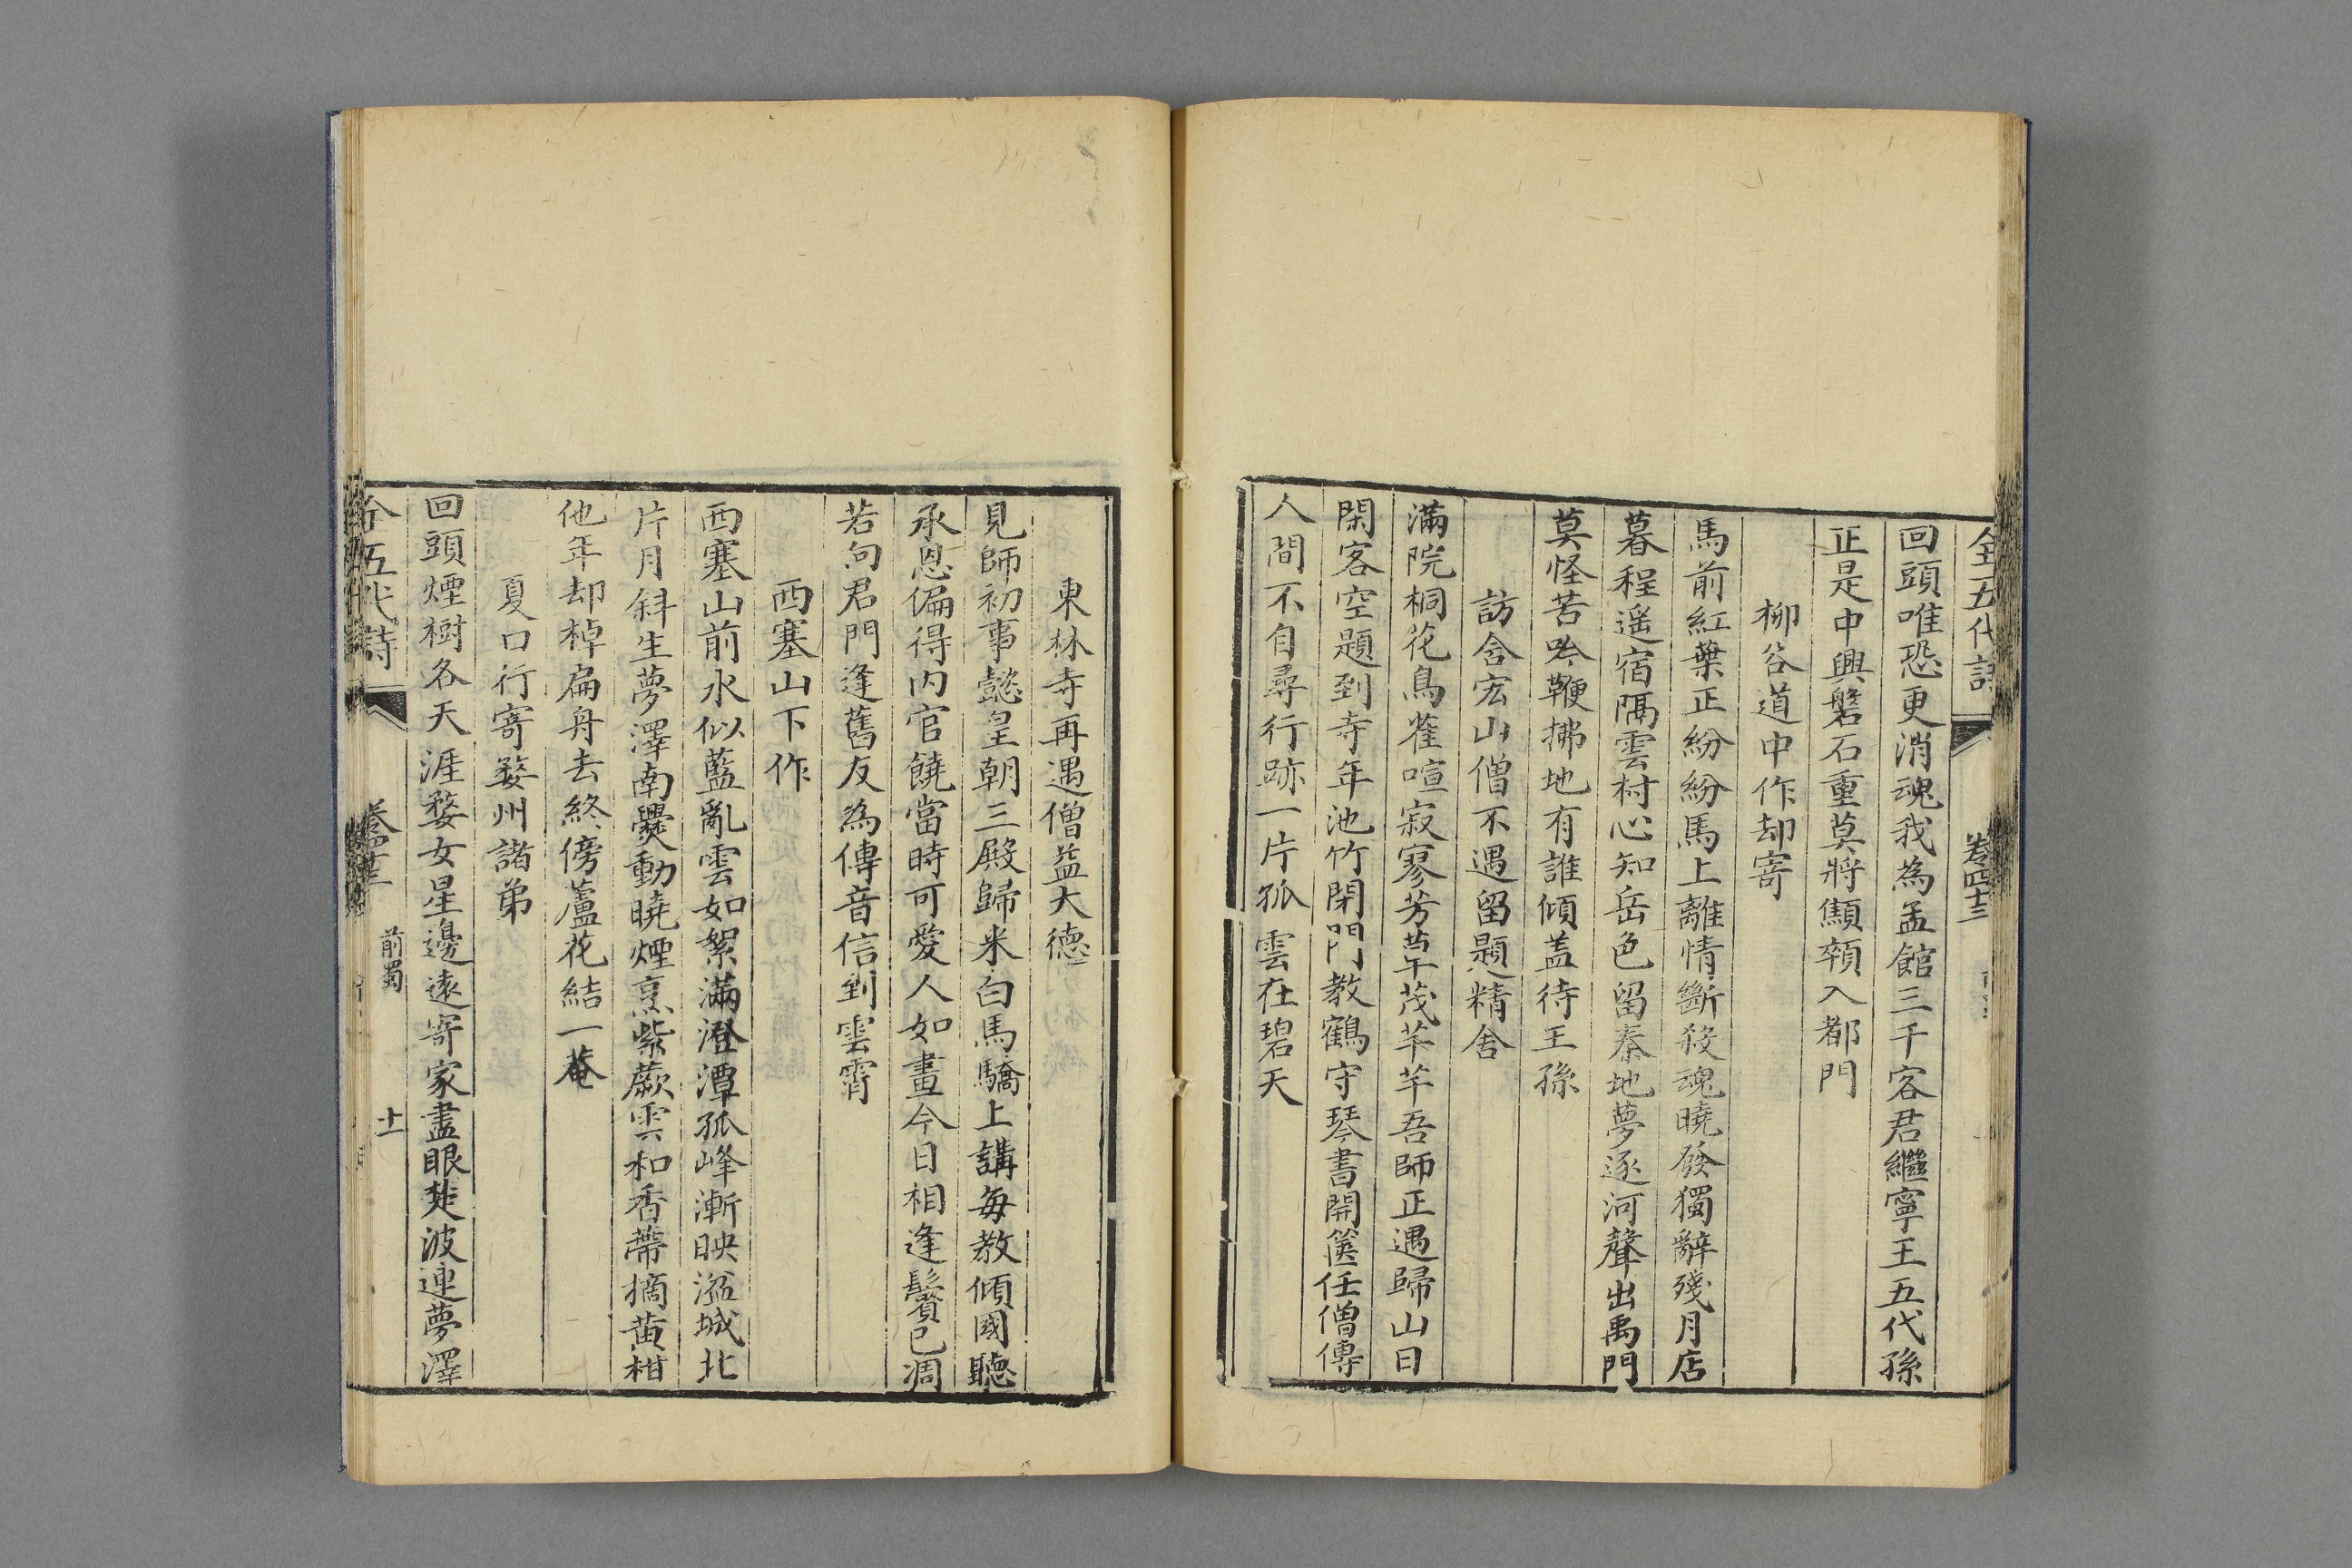 全五代詩 卷四十三
回頭唯恐更消魂我為孟館三千客君繼寧王五代孫
正是中興磐石重莫將顦顇入都門
柳谷道中作却寄
馬前紅葉正紛紛馬上離情斷殺魂曉發獨辭殘月店
暮程遥宿隔雲村心知岳色留秦地夢逐河聲出禹門
莫怪苦吟鞭拂地有誰傾盖待王孫
訪含宏山僧不遇留題精舍
滿院桐花鳥雀喧寂寥芳草茂芊芊吾師正遇歸山日
閑客空題到寺年池竹閉門教鶴守琴書開篋任僧傳
人間不自尋行跡一片孤雲在碧天
東林寺再遇僧益大德
見師初事懿皇朝三殿歸來白馬驕上講每教傾國聽
承恩偏得内官饒當時可愛人如畫今日相逢鬢已凋
若向君門逢舊友為傳音信到雲霄
西塞山下作
西塞山前水似藍亂雲如絮滿澄潭孤峰漸映湓城北
片月斜生夢澤南爨動曉煙烹紫蕨露和香蒂摘黄柑
他年却棹扁舟去終傍蘆花結一菴
夏口行寄婺州諸弟
回頭煙樹各天涯婺女星邊遠寄家盡眼楚波連夢澤
全五代詩 卷四十三 前蜀 十一